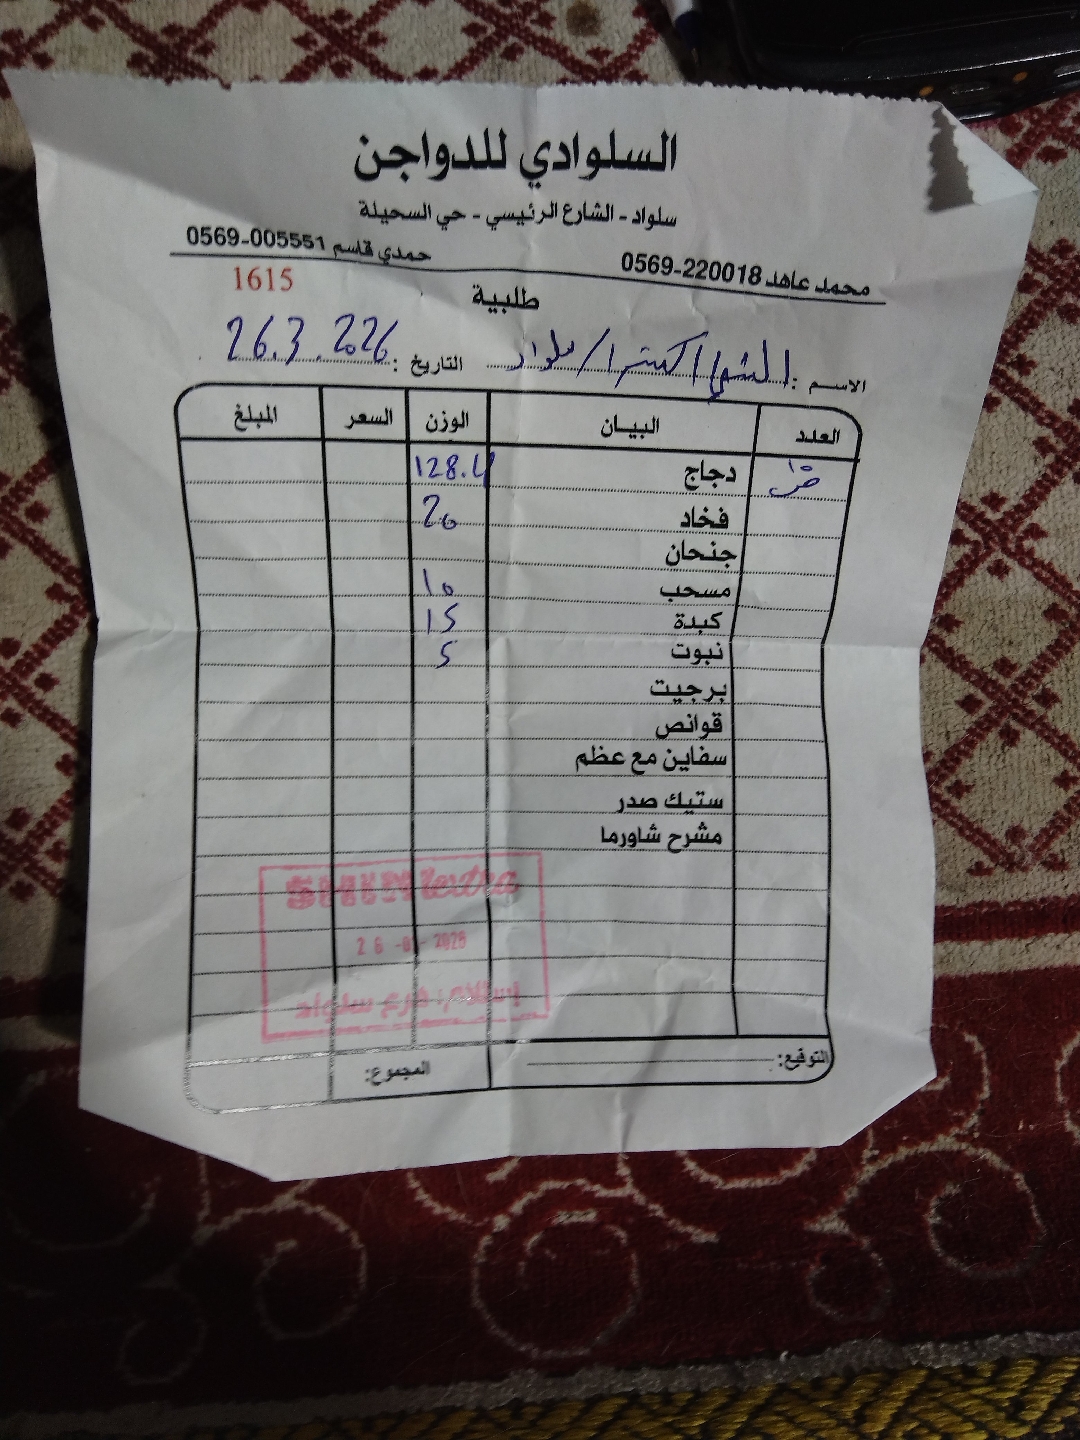 السلوادي للدواجن
سلواد - الشارع الرئيسي - حي السحيلة
محمد عاهد 220018-0569 حمدي قاسم 005551-0569
1615
طلبية
الاســم : الشني اكسترا / سلواد التاريخ : 26.3.2026
العدد البيــان الوزن السعر المبلغ
دجاج 128.4
فخاد 20
جنحان
مسحب 10
كبدة 15
نبوت 5
برجيت
قوانص
سفاين مع عظم
ستيك صدر
مشرح شاورما
SHINI extra
استلام: فرع سلواد
التوقيع: المجموع: